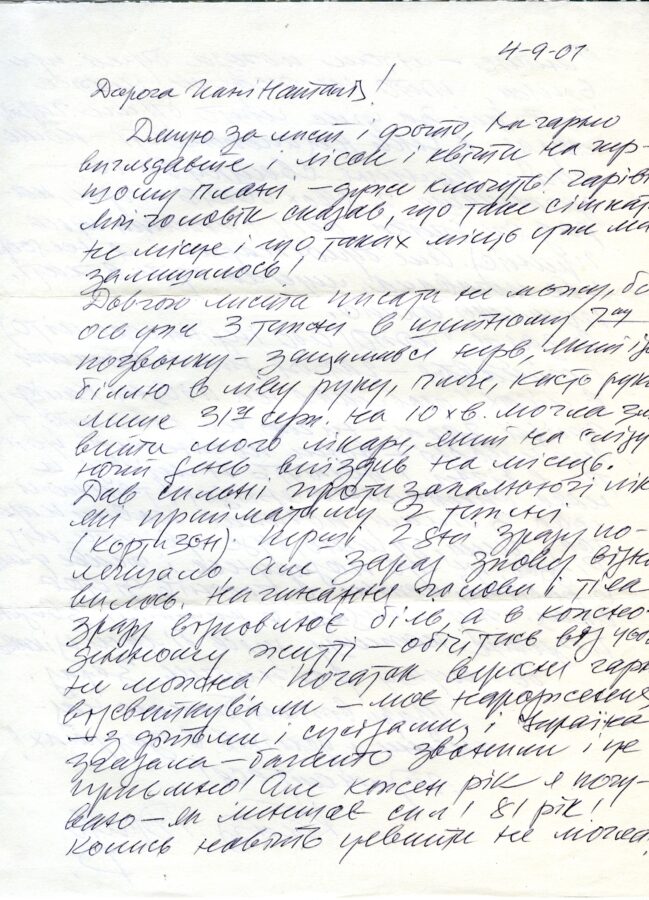 4-9-01
Дорога Пані Наталю!
Дякую за лист і фото, Ви гарно
виглядаєте і лісок і квіти на пер-
шому плані – дуже кличуть!
мій чоловік сказав, що таке
не місце і що таких місць уже ма
залишалось!
Довгого листа писати не можу, бо
ось уже 3 тижні в шийному
позвонку – защемився нерв, який
болю в ліву руку, плече, кисть руки
лише 31 серп. на 10 хв. могла
мого лікаря, який на сліду
ючий день виїздив на місяць.
Дав сильні протизапалюючі лік
які прийматиму 2 тижні
(кортизон). Перші 2 дні зразу по-
легшало але зараз знову відно
вилось. Нагинання голови і тіла
зразу відновлює біль, а в кожно-
му житті – обійтись від цього
не можна! Початок вересня гарн
відсвяткували – моє народження
– з дітьми і сусідами, і Україна
– багато дзвонили і це
приємно! Але кожен рік я почу-
ваю – як меншає сил! 81 рік!
Колись навіть уявити не могла